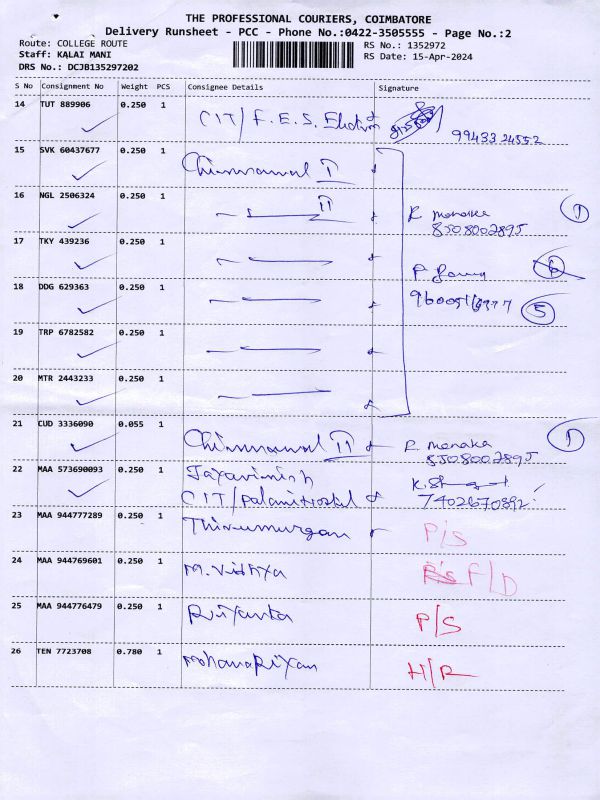 THE PROFESSIONAL COURIERS, COIMBATORE
Delivery Runsheet - PCC - Phone No.:0422-3505555 - Page No.:2
Route: COLLEGE ROUTE
RS No.: 1352972
Staff: KALAI MANI
RS Date: 15-Apr-2024
DRS No.: DCJB135297202
S No Consignment No Weight PCS Consignee Details Signature
14 TUT 889906 0.250 1 CIT/F.E.S.
9943324552
15 SVK 60437677 0.250 1 I
16 NGL 2506324 0.250 1 II R monaka 1
8508002895
17 TKY 439236 0.250 1
18 DDG 629363 0.250 1 5
19 TRP 6782582 0.250 1
20 MTR 2443233 0.250 1
21 CUD 3336090 0.055 1 II R. monaka 1
8508002895
22 MAA 573690093 0.250 1
CIT/Palani Hostel 7402670392
23 MAA 944777289 0.250 1 Thirumurgan P/S
24 MAA 944769601 0.250 1 M. Vidhya F/D
25 MAA 944776479 0.250 1 Priyanka P/S
26 TEN 7723708 0.780 1 H/R